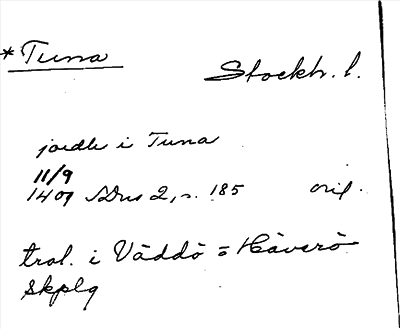 *Tuna
Stockh. l.
jordh i Tuna
11/9
1409 SDns 2, s. 185 orig.
trol. i Väddö = Häverö
skplg